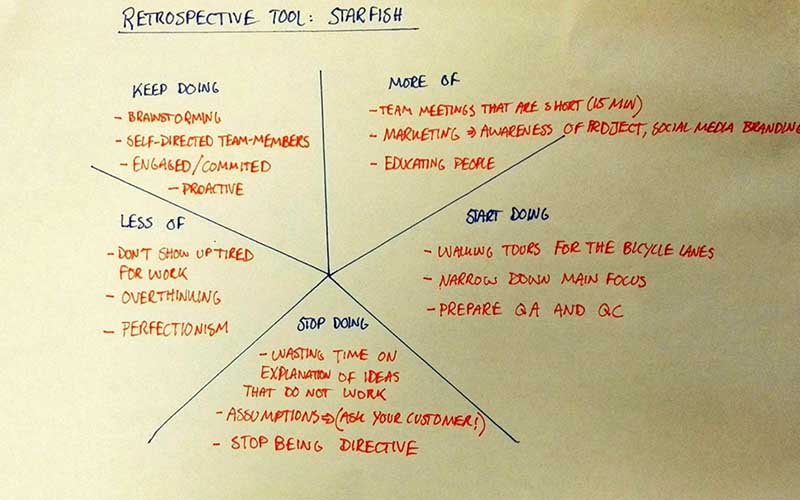 RETROSPECTIVE TOOL: STARFISH
KEEP DOING
- BRAINSTORMING
- SELF-DIRECTED TEAM-MEMBERS
- ENGAGED/COMMITED
- PROACTIVE
MORE OF
- TEAM MEETINGS THAT ARE SHORT (15 MIN)
- MARKETING ⇒ AWARENESS OF PROJECT, SOCIAL MEDIA BRANDING
- EDUCATING PEOPLE
LESS OF
- DON'T SHOW UP TIRED
FOR WORK
- OVERTHINKING
- PERFECTIONISM
START DOING
- WALKING TOURS FOR THE BICYCLE LANES
- NARROW DOWN MAIN FOCUS
- PREPARE QA AND QC
STOP DOING
- WASTING TIME ON
EXPLANATION OF IDEAS
THAT DO NOT WORK
- ASSUMPTIONS ⇒ (ASK YOUR CUSTOMER!)
- STOP BEING DIRECTIVE